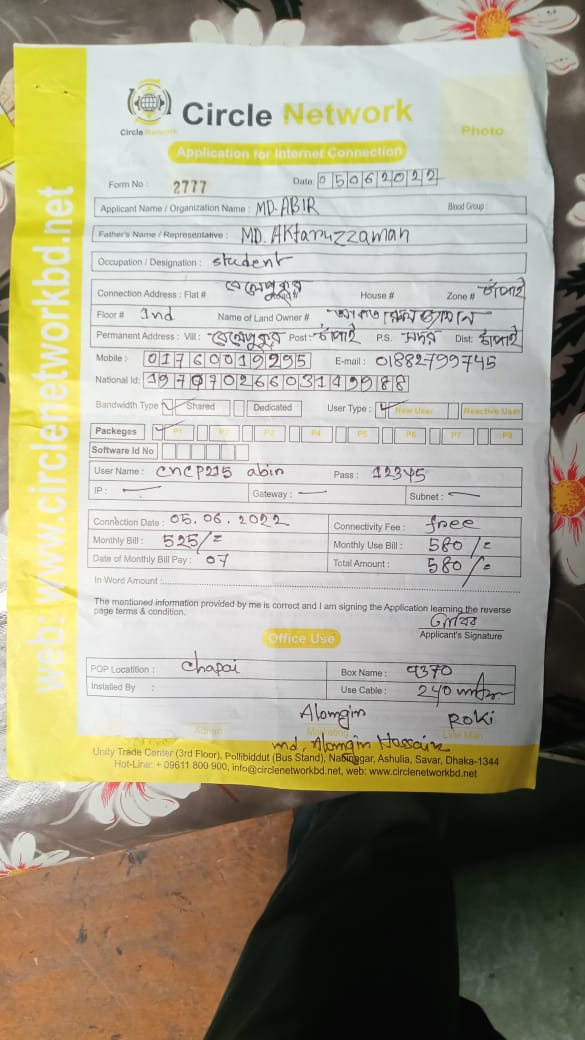 Circle Network
Circle Network
Photo
Application for Internet Connection
Form No : 2777 Date: 05062022
Applicant Name / Organization Name : MD. ABIR Blood Group :
Father's Name / Representative : MD. AKtaruzzaman
Occupation / Designation : student
Connection Address : Flat # House # Zone # চাঁপাই
Floor # 2nd Name of Land Owner #
Permanent Address : Vill : Post : চাঁপাই P.S. সদর Dist: চাঁপাই
Mobile : 01760019295 E-mail : 01882799745
National Id:
Bandwidth Type Shared Dedicated User Type : New User Reactive User
Packeges P1 P2 P3 P4 P5 P6 P7 P8
Software Id No
User Name : cncp215 abir Pass : 12345
IP : Gateway : Subnet :
Connection Date : 05.06.2022 Connectivity Fee : free
Monthly Bill : 525/= Monthly Use Bill : 580/=
Date of Monthly Bill Pay : 07 Total Amount : 580/=
In Word Amount :
The mentioned information provided by me is correct and I am signing the Application learning the reverse
page terms & condition.
Applicant's Signature
Office Use
POP Locatition : Chapai Box Name : 9370
Installed By : Use Cable : 240
Alomgin ROKi
Admin Marketing Line Man
md. Alomgin Hossain
Unity Trade Center (3rd Floor), Pollibiddut (Bus Stand), Nabinagar, Ashulia, Savar, Dhaka-1344
Hot-Line: + 09611 800 900, info@circlenetworkbd.net, web: www.circlenetworkbd.net
web: www.circlenetworkbd.net